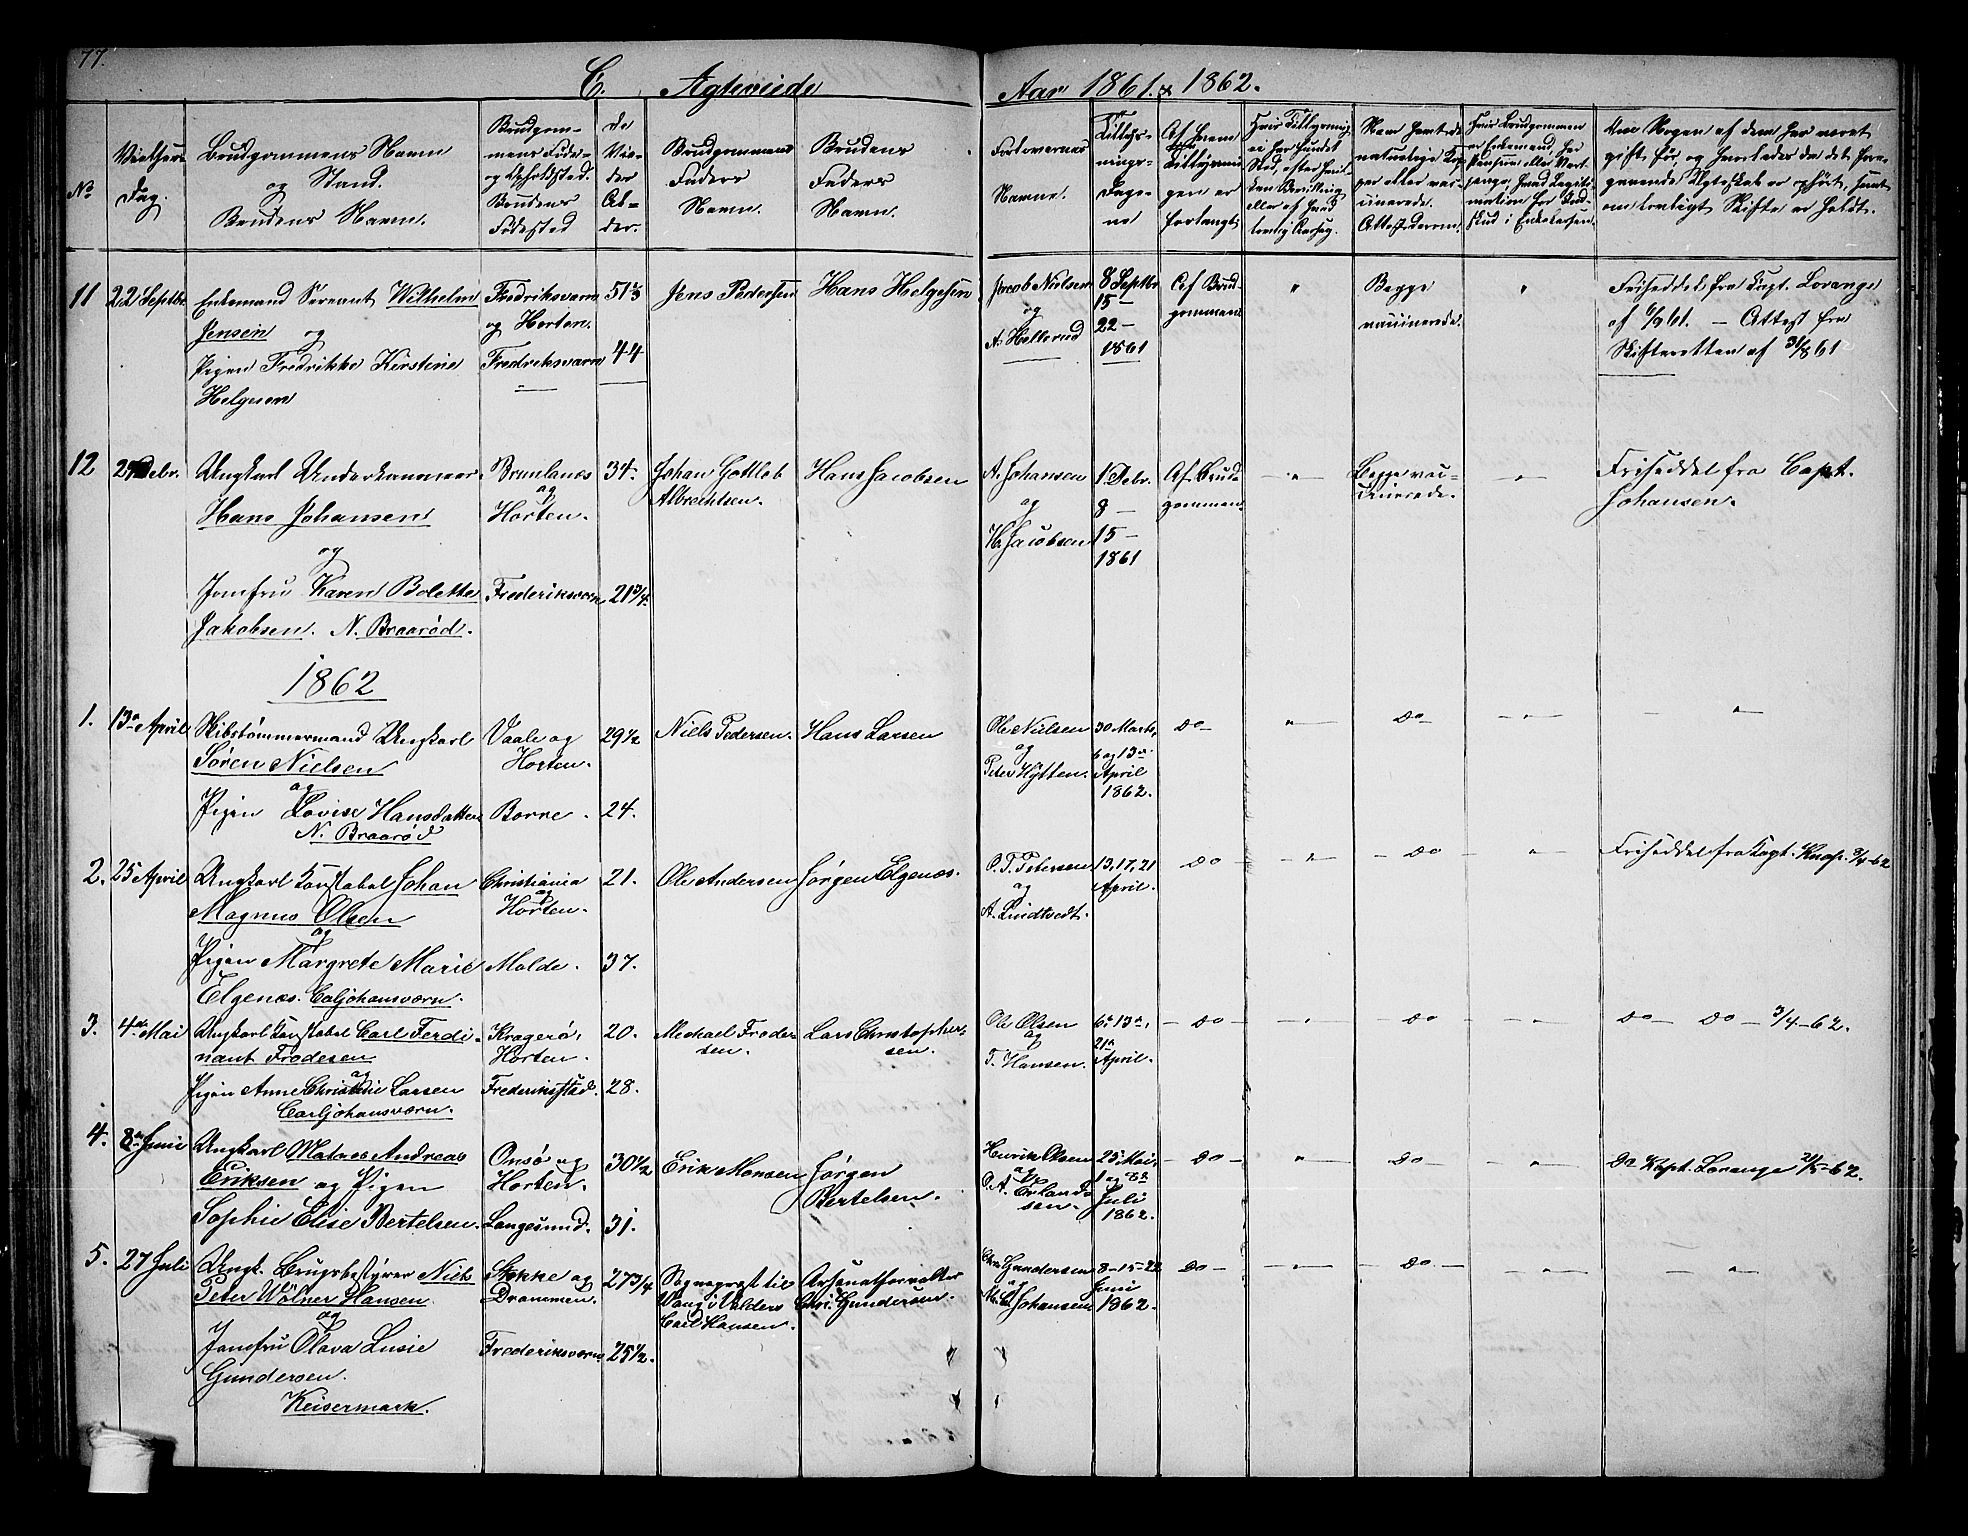 77.
C. Ægteviede
Aar 1861. & 1862.
No
Vielses Dag.
Brudgommens Navn
og Stand.
Brudens Navn.
Brudgom-
mens Føde-
og Opholdssted.
Brudens
Fødested
De
Vie-
des
Al-
der.
Brudgommens
Faders
Navn.
Brudens
Faders
Navn.
Forlovernes
Navne.
Tillys-
nings-
Dage-
ne
Af hvem
Tillysnin-
gen er
forlangt
11 22 Septbr. Enkemand Sergeant Wilhelm
Jensen og
Pigen Fredrikke Kirstine
Helgesen
Fredriksværn
og Horten.
Fredriksværn
51 2/3
44
Jens Pedersen
Hans Helgesen
Jacob Nielsen
og
A. Hellerud
8 Septbr
15 —
22 —
1861
Af Brud-
gommen
"
Begge
vaccinerede.
"
Friseddel fra Capt. Lorange
af 6/9 61. — Attest fra
Skifteretten af 31/8 61
12 Debr. Ungkarl Underkanoneer
Hans Johansen
og
Jomfru Karen Bolette
Jakobsen. N. Braarød.
Brunlanes
og
Horten.
Frederiksværn
34.
21 3/4.
Johan Gottlob
Albrechtsen.
Hans Jacobsen
A. Johansen
og
H. Jacobsen
1 Debr.
8 —
15 —
1861
Af Brud-
gommen.
— " —
Begge vac-
cinerede.
— " —
Friseddel fra Capt.
Johansen.
1862
1. 13de April Skibstømmermand Ungkarl
Søren Nielsen
og
Pigen Lovise Hansdatter
N. Braarød
Vaale og
Horten.
Borre.
29 1/2
24.
Niels Pedersen.
Hans Larsen
Ole Nielsen
og
Peter Hytten.
30 Marts,
6 og 13de
April
1862.
do — " — do — " — "
2. 25 April Ungkarl Konstabel Johan
Magnus Olsen
og
Pigen Margrete Marie
Elgenæs. Carljohansværn.
Christiania
og
Horten.
Molde.
21.
37.
Ole Andersen
Jørgen Elgenæs.
O. T. Petersen
og
A. Lindtvedt.
13, 17, 21
April.
do — " — do — " —
Friseddel fra Kapt. Knap. 3/4-62
3. 4de Mai Ungkarl Konstabel Carl Ferdi-
nant Frodesen
og
Pigen Anne Christine Larsen
Carljohansværn.
Kragerø,
Horten.
Frederiksstad.
20.
28.
Michael Frode-
sen.
Lars Christopher-
sen.
Ole Olsen
og
T. Hansen.
6te 13de,
21de
April.
— do — " — do — " —
do — do — 3/4-62.
4. 8de Juni Ungkarl Matias Andreas
Eriksen og Pigen
Sophie Elise Bertelsen.
Onsø og
Horten.
Langesund.
30 1/2
31.
Erik Monsen
Jørgen
Bertelsen.
Henrik Olsen
og
O. A. Erland-
sen.
25 Mai,
1 og 8de
Juli
1862.
— do — " — do — " —
do Kapt. Lorange 21/5-62.
5. 27 Juli Ungk. Brugsbestyrer Niels
Peter Wølner Hansen.
og
Jomfru Olava Lusie
Gundersen.
Keisermark.
Stokke og
Drammen.
Frederiksværn
27 3/4
25 1/2.
Sognepræst til
Wang i Valders
Carl Hansen.
Arsenalforvalter
Chr. Gundersen.
Chr. Gundersen
og
Johansen
8-15-22
Juni
1862.
do — " — do — " — "